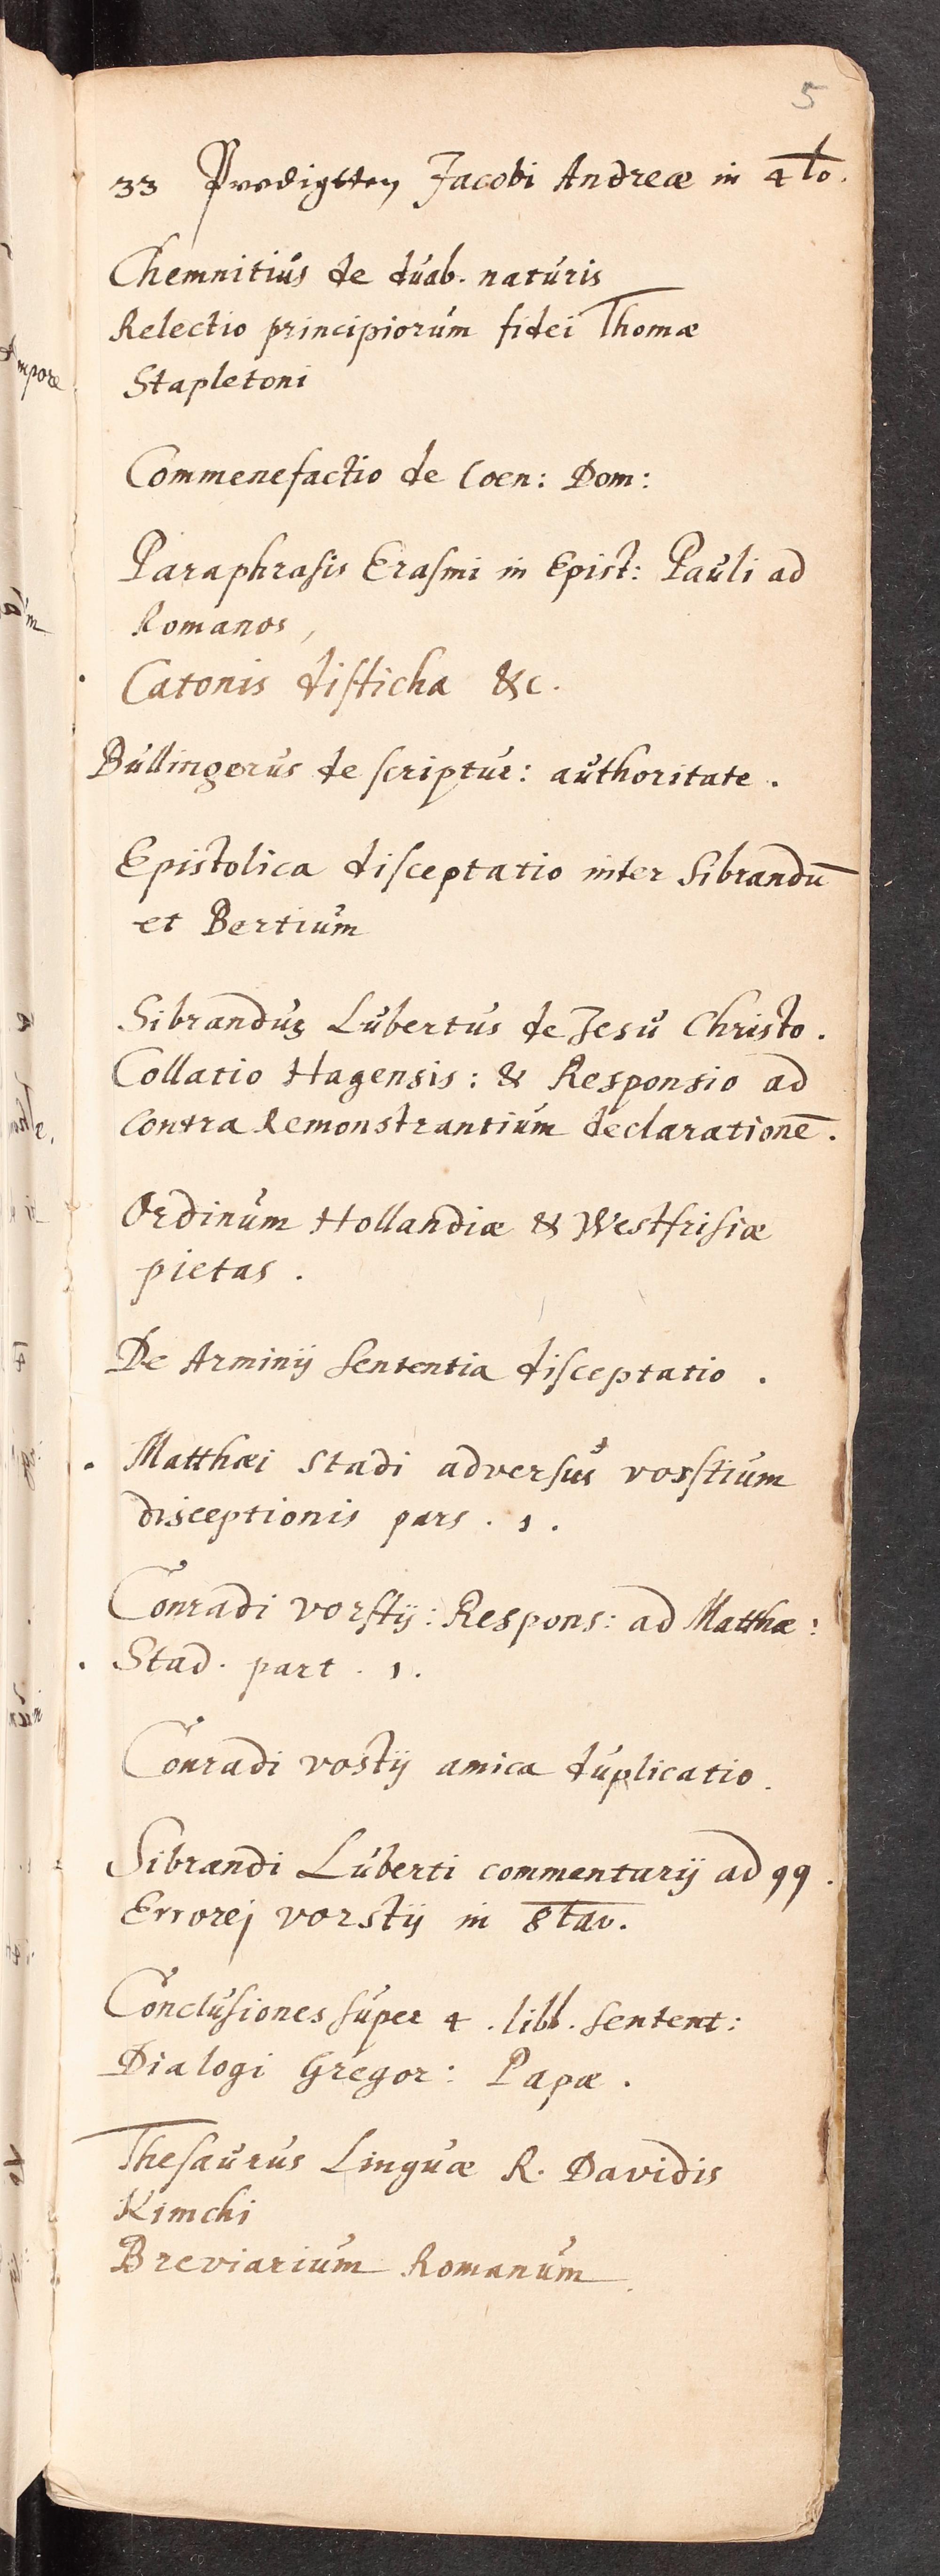 5
33 Predigtten Jacobi Andreæ in 4to.
Chemnitius de duab. naturis
Relectio principiorum fidei Thomæ
Stapletoni
Commenefactio de Coen: Dom:
Paraphrasis Erasmi in Epist: Pauli ad
Romanos,
Catonis disticha &c.
Bullingerus de scriptur: authoritate.
Epistolica disceptatio inter Sibrandū
et Bertium
Sibrandus Lubertus de Jesu Christo.
Collatio Hagensis: & Responsio ad
contra Remonstrantium declarationē.
Ordinum Hollandiæ & Westfrisiæ
pietas.
De Arminij sententia disceptatio.
Matthæi Stadi adversus vorstium
disceptionis pars. 1.
Conradi vorstij: Respons: ad Matthæ:
Stad. part. 1.
Conradi vostij amica duplicatio.
Sibrandi Luberti commentarij ad 99.
Errores vorstij in 8tav.
Conclusiones super 4. libb. sentent:
Dialogi Gregor: Papæ.
Thesaurus Linguæ R. Davidis
Kimchi
Breviarium Romanum.